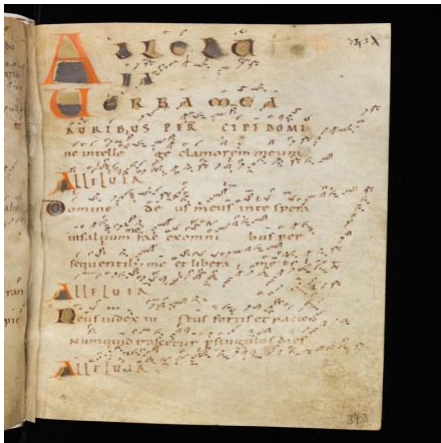 ALLELU
IA
UERBA MEA
AURIBUS PER CIPE DOMI
ne intelle ge clamorem meum
Alleluia
Domine de us meus in te spera
salvum fac ex omni bus per
sequentib; me et libera me
Alleluia
Deus iudex iu stus fortis et paciens
Numquid irascetur p singulos dies
Alleluia
343